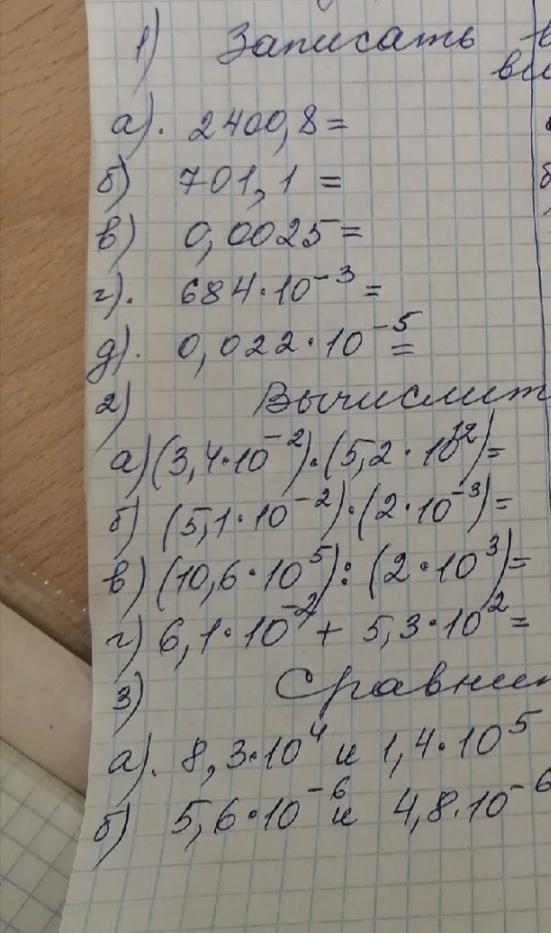 1) Записать в
а). 2400,8=
б) 701,1 =
в) 0,0025=
г). 684·10⁻³=
д). 0,022·10⁻⁵=
2) Вычислит
а) (3,4·10⁻²)·(5,2·10¹²)=
б) (5,1·10⁻²)·(2·10⁻³)=
в) (10,6·10⁵):(2·10³)=
г) 6,1·10⁻² + 5,3·10²=
3) Сравнит
а). 8,3·10⁴ и 1,4·10⁵
б) 5,6·10⁻⁶ и 4,8·10⁻⁶